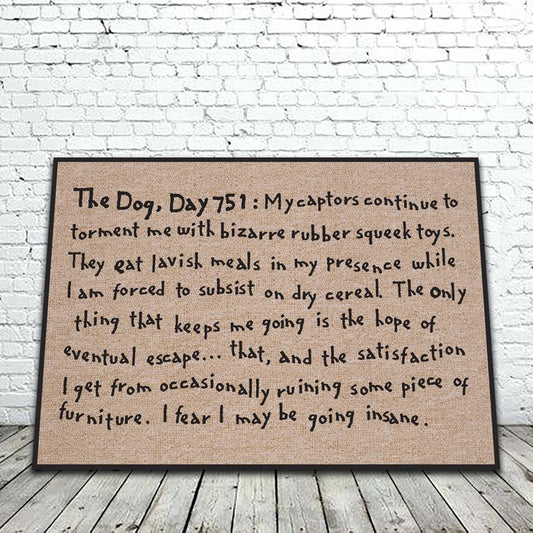 The Dog, Day 751: My captors continue to
torment me with bizarre rubber squeek toys.
They eat lavish meals in my presence while
I am forced to subsist on dry cereal. The only
thing that keeps me going is the hope of
eventual escape... that, and the satisfaction
I get from occasionally ruining some piece of
furniture. I fear I may be going insane.